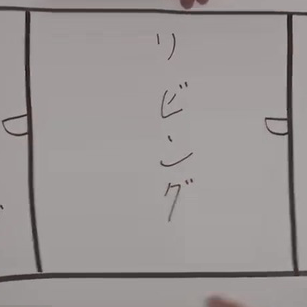 リビング